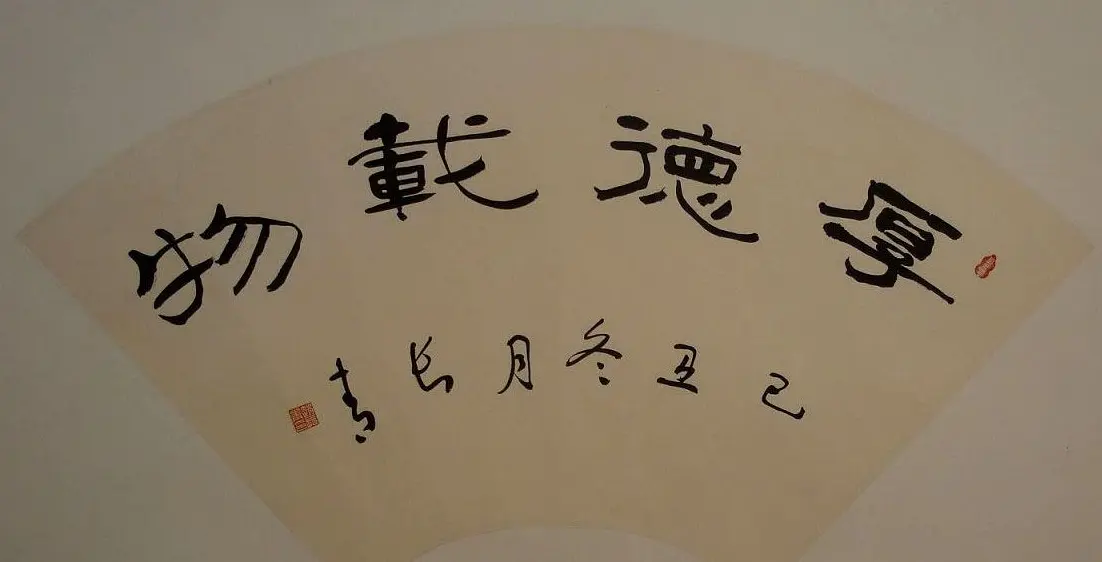 厚德載物
己丑冬月長青